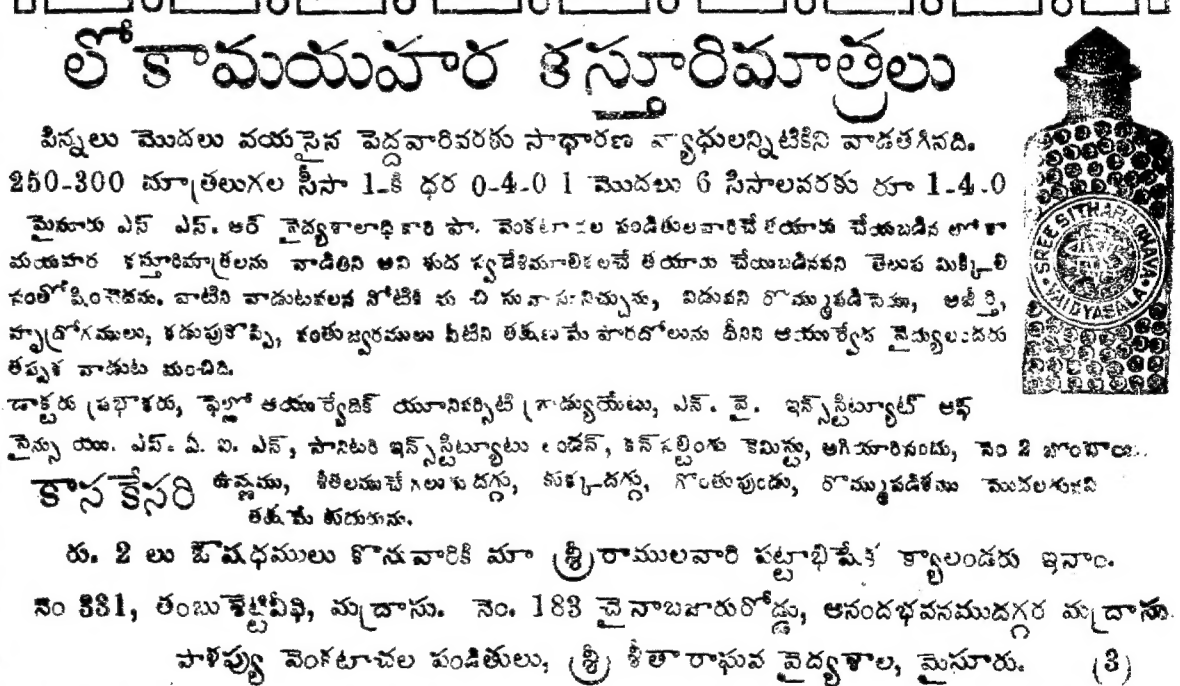 లోకామయహర కస్తూరిమాత్రలు
పిన్నలు మొదలు వయసైన పెద్దవారివరకు సాధారణ వ్యాధులన్నిటికిని వాడతగినది.
250-300 మాత్రలుగల సీసా 1-కి ధర 0-4-0 1 మొదలు 6 సీసాలవరకు రూ 1-4-0
మైసూరు ఎస్ ఎస్. ఆర్ వైద్యశాలాధికారి పా. వెంకటాచల పండితులవారిచే తయారు చేయబడిన లోకా
మయహర కస్తూరిమాత్రలను వాడితిని అవి శుద్ధ స్వదేశమూలికలచే తయారు చేయబడినవని తెలుప మిక్కిలి
సంతోషించెదను. వాటిని వాడుటవలన నోటికి రుచి సువాసననిచ్చును, విడువని రొమ్ముపడిసెము, అజీర్తి,
హృద్రోగములు, కడుపునొప్పి, జ్వరములు వీటిని తక్షణమే పారదోలును దీనిని ఆయుర్వేద వైద్యులందరు
తప్పక వాడుట మంచిది.
డాక్టరు ప్రభాకరు, ఫెల్లో ఆయుర్వేదిక్ యూనివర్సిటి గ్రాడ్యుయేటు, ఎన్. వై. ఇన్స్‌స్టిట్యూట్ ఆఫ్
సైన్సు యు. ఎస్. ఏ. ఐ. ఎన్, సానిటరి ఇన్స్‌స్టిట్యూటు లండన్, కన్‌సల్టింగు కెమిస్టు, అగియారిసందు, నెం 2 బొంబాయి.
కాసకేసరి ఉష్ణము, శీతలముచే గలుగు దగ్గు, కుక్కదగ్గు, గొంతుపుండు, రొమ్ముపడిశము మొదలగునవి
తక్షణమే కుదురును.
రు. 2 లు ఔషధములు కొనువారికి మా శ్రీరాములవారి పట్టాభిషేక క్యాలండరు ఇనాం.
నెం 331, తంబుశెట్టివీధి, మద్రాసు. నెం. 183 చైనాబజారురోడ్డు, ఆనందభవనముదగ్గర మద్రాసు.
పాళప్యు వెంకటాచల పండితులు, శ్రీ సీతారాఘవ వైద్యశాల, మైసూరు. (3)
SREE SITHARAGHAVA
VAIDYASALA